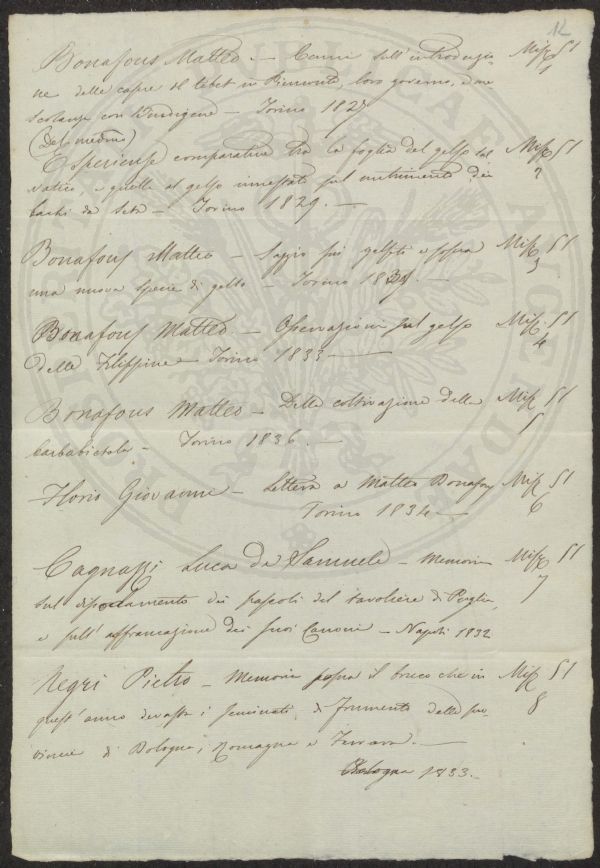 12
Bonafous Matteo – Cenni sull'introduzio Misc 51
ne delle capre del tebet in Piemonte, loro governo, e me 1
scolanze con Indigene – Torino 1827
(Del medmo)
Esperienze comparative tra la foglia del gelso sal Misc 51
vatico, e quella del gelso innestato sul nutrimento dei 2
bachi da Seta – Torino 1829. –
Bonafous Matteo – Saggio sui gelseti e sopra Misc 51
una nuova specie di gelso – Torino 3
Bonafous Matteo – Osservazioni sul gelso Misc 51
delle Filippine – Torino 1833 – 4
Bonafous Matteo – Della coltivazione della Misc 51
barbabietola – Torino 1836. – 5
Florio Giovanni – Lettera a Matteo Bonafous Misc 51
Torino 1834 – 6
Cagnazzi Luca de Samuele – Memoria Misc 51
sul dei pascoli del tavoliere di Puglia, 7
e sull'affrancazione dei suoi Canoni – Napoli 1832
Negri Pietro – Memoria sopra il bruco che in Misc 51
quest'anno devasta i seminati di frumento delle pro 8
vincie di Bologna, Romagna e Ferrara. –
Bologna 1833. –